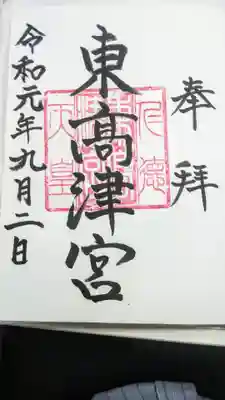 奉拝
東高津宮
仁徳
天皇
令和元年九月二日